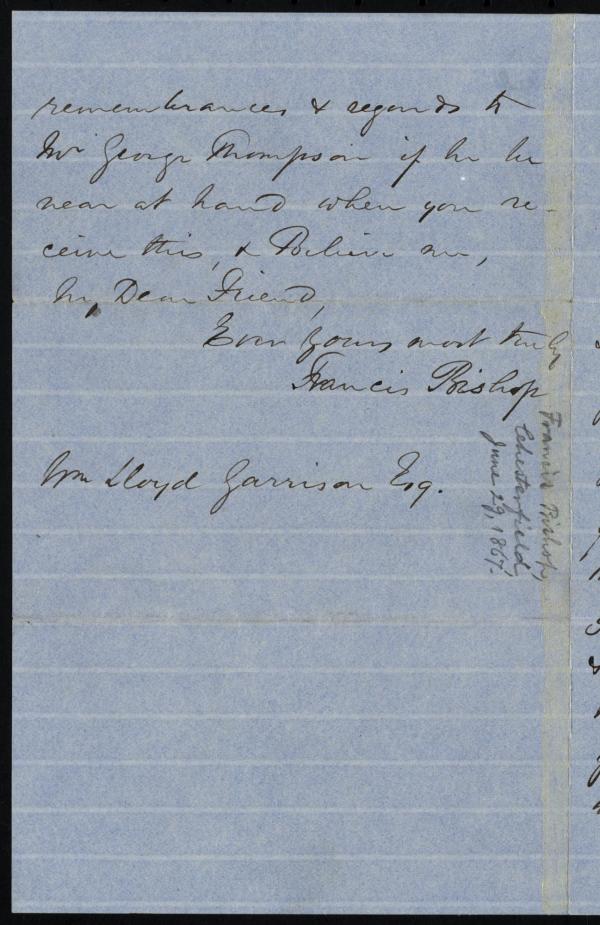 remembrances & regards to
Mr George Thompson if he be
near at hand when you re-
ceive this, & Believe me,
My Dear Friend,
Ever Yours most truly
Francis Bishop
Wm Lloyd Garrison Esq.
Francis Bishop,
Chesterfield,
June 29, 1867.